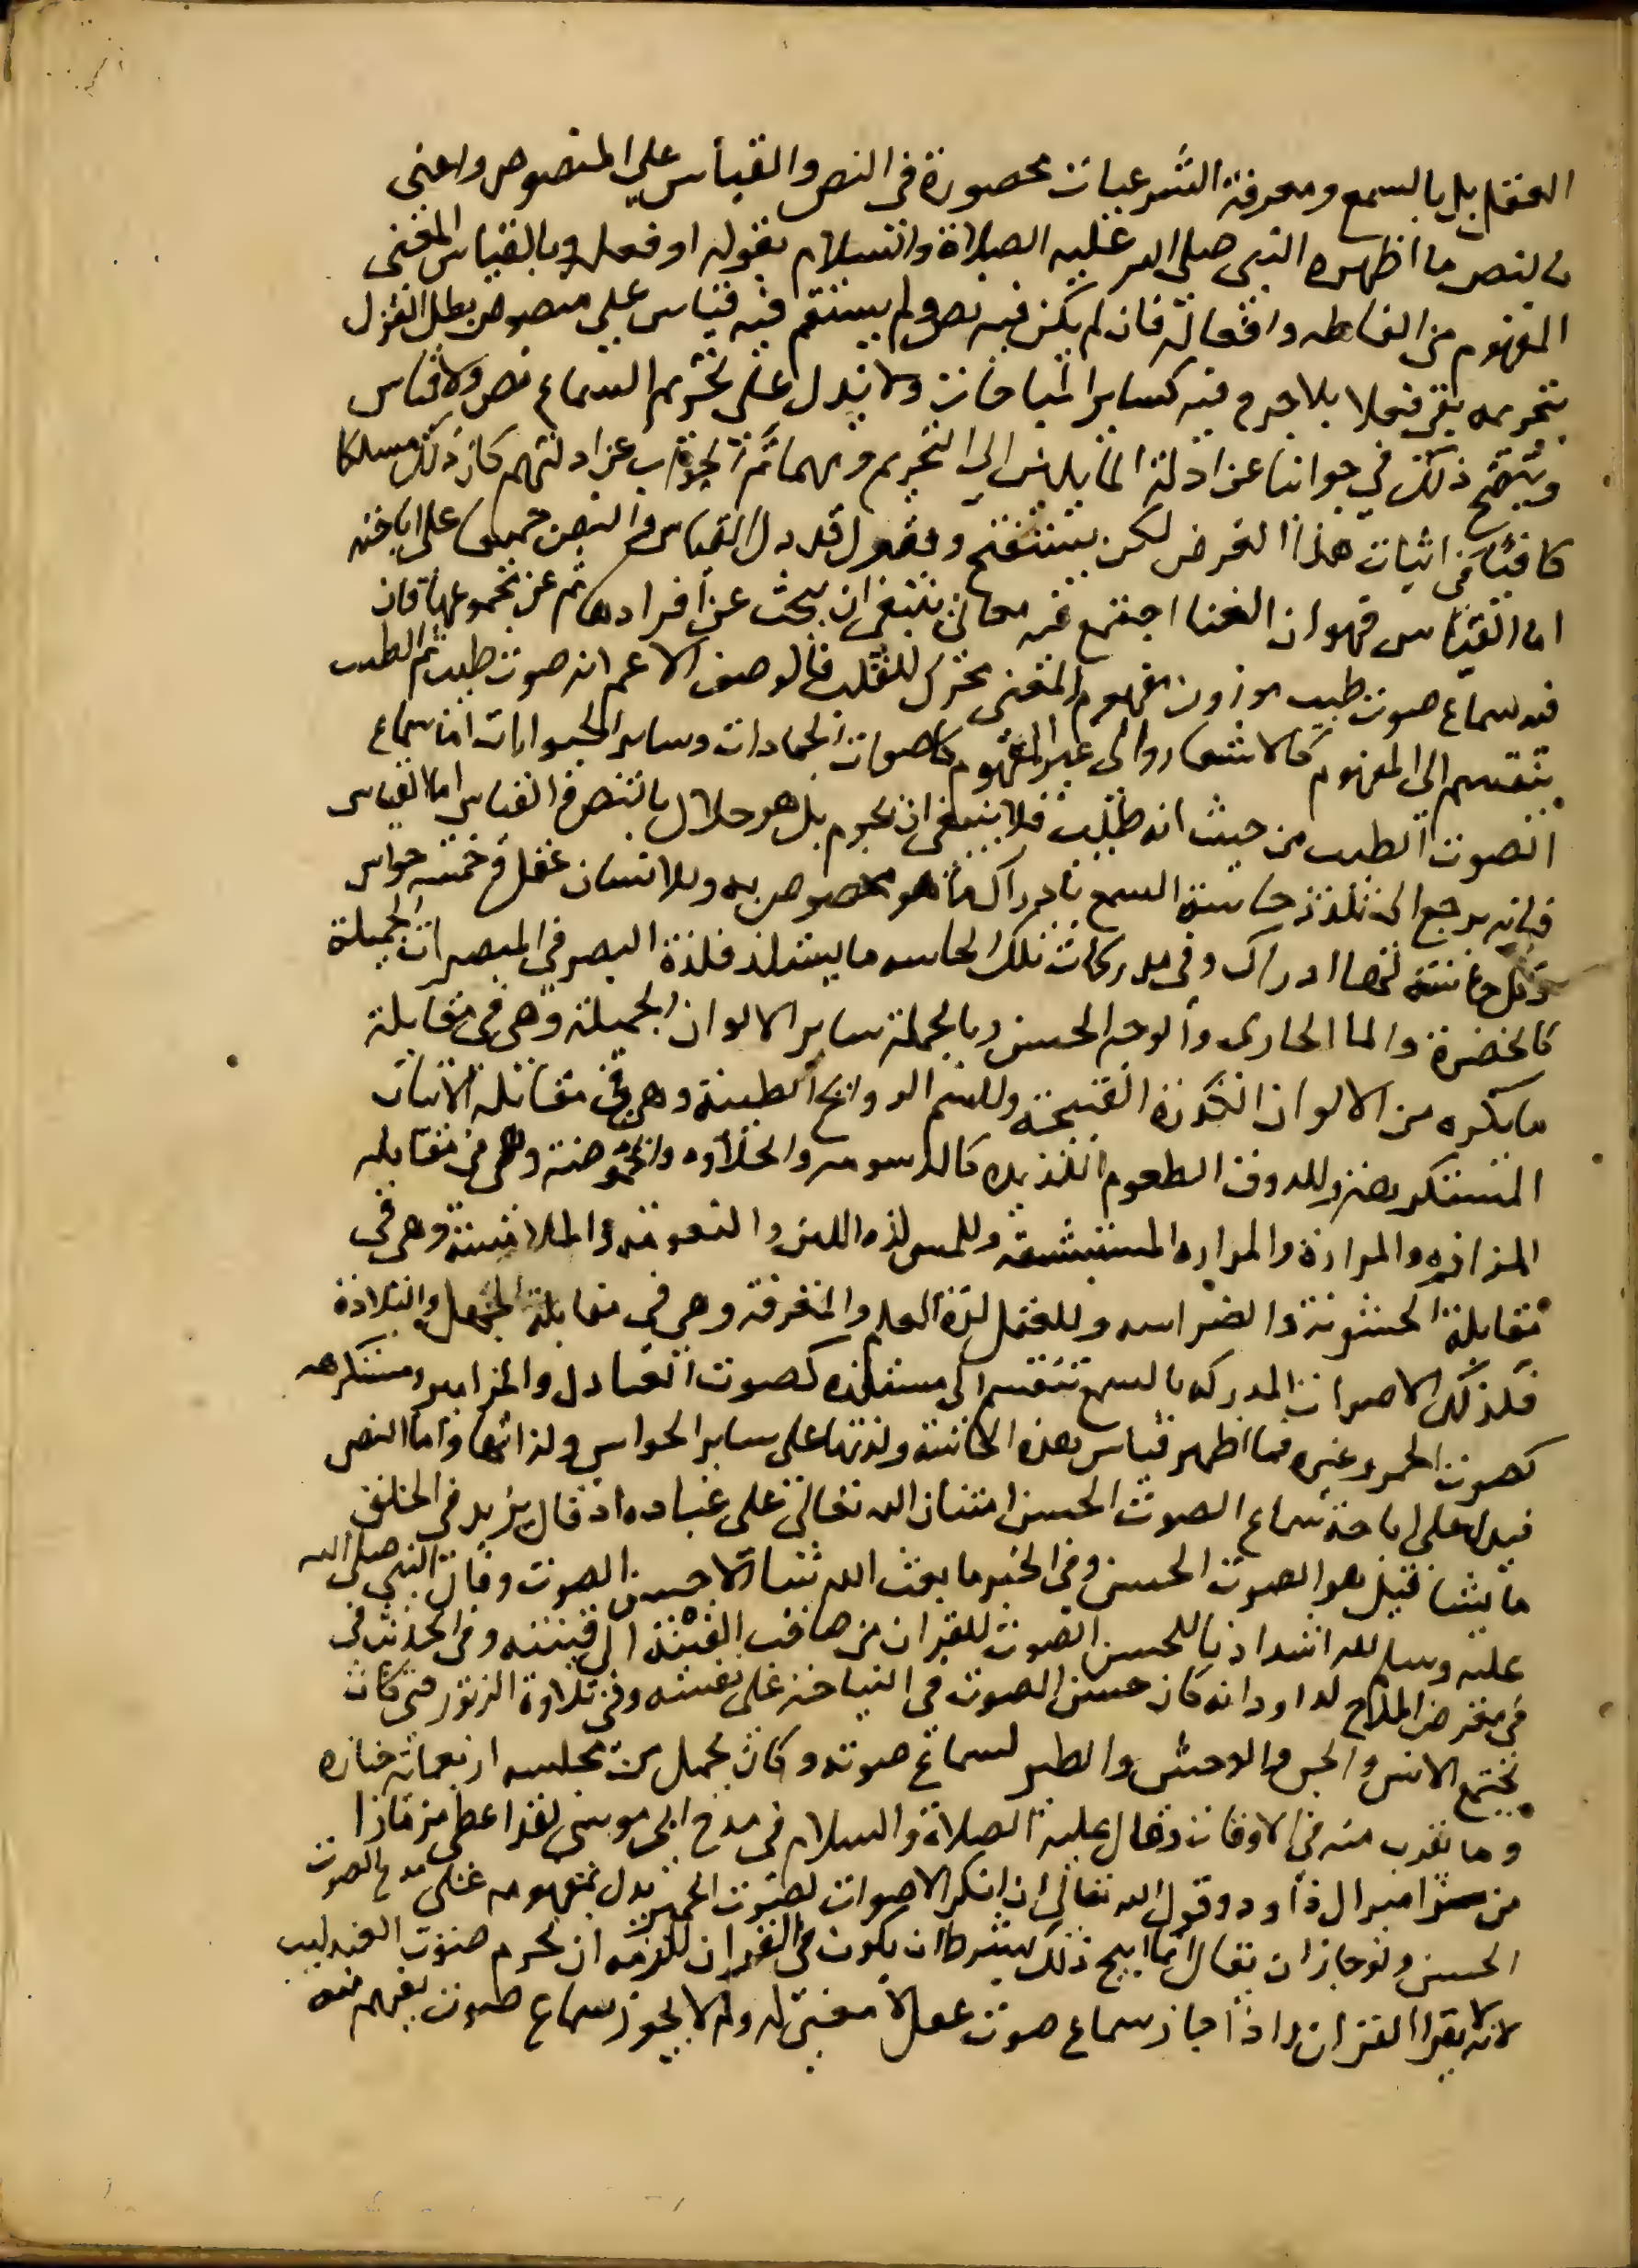 العقل بل بالسمع ومعرفة الشرعيات محصورة في النص والقياس علي المنصوص واعني
بالنص ما اظهره النبي صلي الله عليه الصلاة والسلام بقوله او فعله وبالقياس المعني
المفهوم من الفاظه وافعاله فان لم يكن فيه نص ولم يستقم فيه قياس علي منصوص بطل القول
بتحريمه بقي فعلا بلا حرج فيه كساير المباحات ولا يدل علي تحريم السماع نص ولا قياس
ويتضح ذلك في جوابنا عن ادلة المايلين الي التحريم ومهما تم الجواب عن ادلتهم كان ذلك مسلكا
كافيا في اثبات هذا الغرض لكن نستفتح ونقول قد دل القياس والنص جميعا علي اباحته
اما القياس فهو ان الغنا اجتمع فيه معاني ينبغي ان يبحث عن افرادها ثم عن مجموعها فان
فيه سماع صوت طيب موزون مفهوم المعني محرك للقلب فالوصف الاعم انه صوت طيب ثم الطيب
ينقسم الي المفهوم كالاشعار والي غير المفهوم كاصوات الجمادات وساير الحيوانات اما سماع
الصوت الطيب من حيث انه طيب فلا ينبغي ان يحرم بل هو حلال بالنص والقياس اما القياس
فانه يرجع الي تلذذ حاسة السمع بادراك ما هو مخصوص به وللانسان عقل وخمسة حواس
ولكل حاسة لها ادراك وفي مدركات تلك الحاسه ما يستلذ فلذة البصر في المبصرات الجميلة
كالخضرة والما الجاري والوجه الحسن وبالجملة ساير الالوان الجميلة وهي في مقابلة
ما يكره من الالوان الكدرة القبيحة وللشم الروايح الطيبة وهي في مقابلة الانتان
المستكرهة وللذوق الطعوم اللذيده كالدسومه والحلاوه والحموضة وهي في مقابله
المزازه والمرارة والمراره المستبشعة وللمس لذه اللين والنعومة والملاسة وهي في
مقابلة الخشونة والضراسه وللعقل لذة العلم والمعرفة وهي في مقابلة الجهل والبلادة
فكذلك الاصوات المدركه بالسمع تنقسم الي مستلذه كصوت العنادل والمزامير ومستكرهه
كصوت الحمر وغيره فما اظهر قياس هذه الحاسة ولذتها علي ساير الحواس ولذاتها واما النص
فيدل علي اباحة سماع الصوت الحسن امتنان الله تعالي علي عباده اذ قال يزيد في الخلق
ما يشا قيل هو الصوت الحسن وفي الخبر ما بعث الله نبيا الا حسن الصوت وقال النبي صلي الله
عليه وسلم لله اشد اذنا للحسن الصوت للقران من صاحب القينة الي قينته وفي الحديث في
في معرض المدح لداود انه كان حسن الصوت في النياحة علي نفسه وفي تلاوة الزبور حتي كان
يجتمع الانس والجن والوحش والطير لسماع صوته وكان يحمل من مجلسه اربعمائة جنازه
وما يقرب منه في الاوقات وقال عليه الصلاة والسلام في مدح ابي موسي لقد اعطي مزمارا
من مزامير ال داود وقول الله تعالي ان انكر الاصوات لصوت الحمير يدل بمفهومه علي مدح الصوت
الحسن ولو جاز ان يقال انما ابيح ذلك بشرط ان يكون في القران للزمه ان يحرم صوت العندليب
لانه لا يقرا القران واذا جاز سماع صوت غفل لا معني له ولم لا يجوز سماع صوت يفهم منه